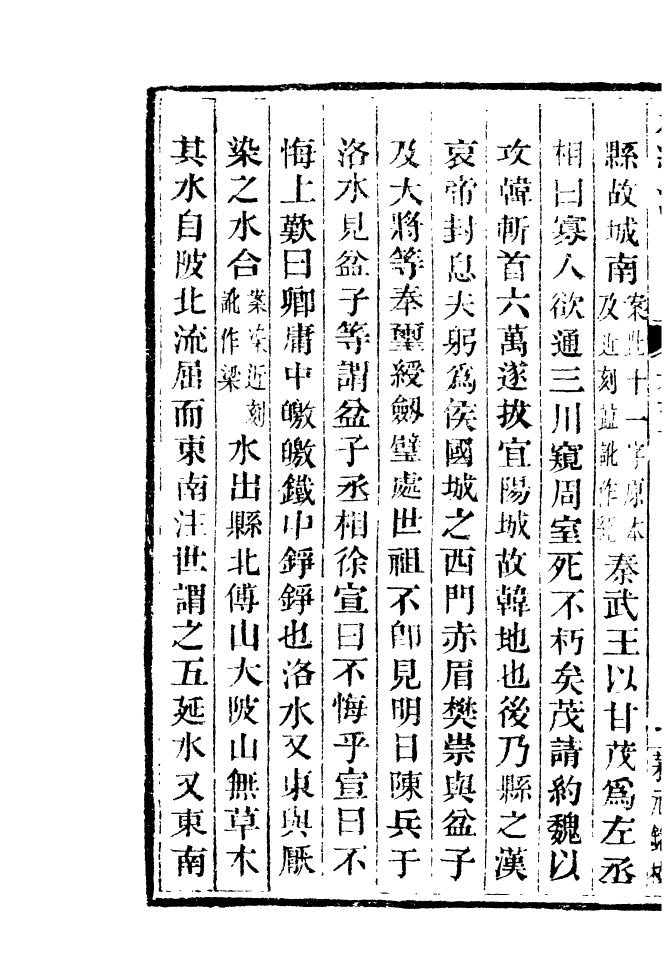 縣故城南案此十一字原本及近刻並訛作經秦武王以甘茂爲左丞
相曰寡人欲通三川窺周室死不朽矣茂請約魏以
攻韓斬首六萬遂拔宜陽城故韓地也後乃縣之漢
哀帝封息夫躬爲侯國城之西門赤眉樊崇與盆子
及大將等奉璽綬劔璧處世祖不卽見明日陳兵于
洛水見盆子等謂盆子丞相徐宣曰不悔乎宣曰不
悔上歎曰卿庸中皦皦鐵中錚錚也洛水又東與厭
染之水合案染近刻訛作梁水出縣北傅山大陂山無草木
其水自陂北流屈而東南注世謂之五延水又東南